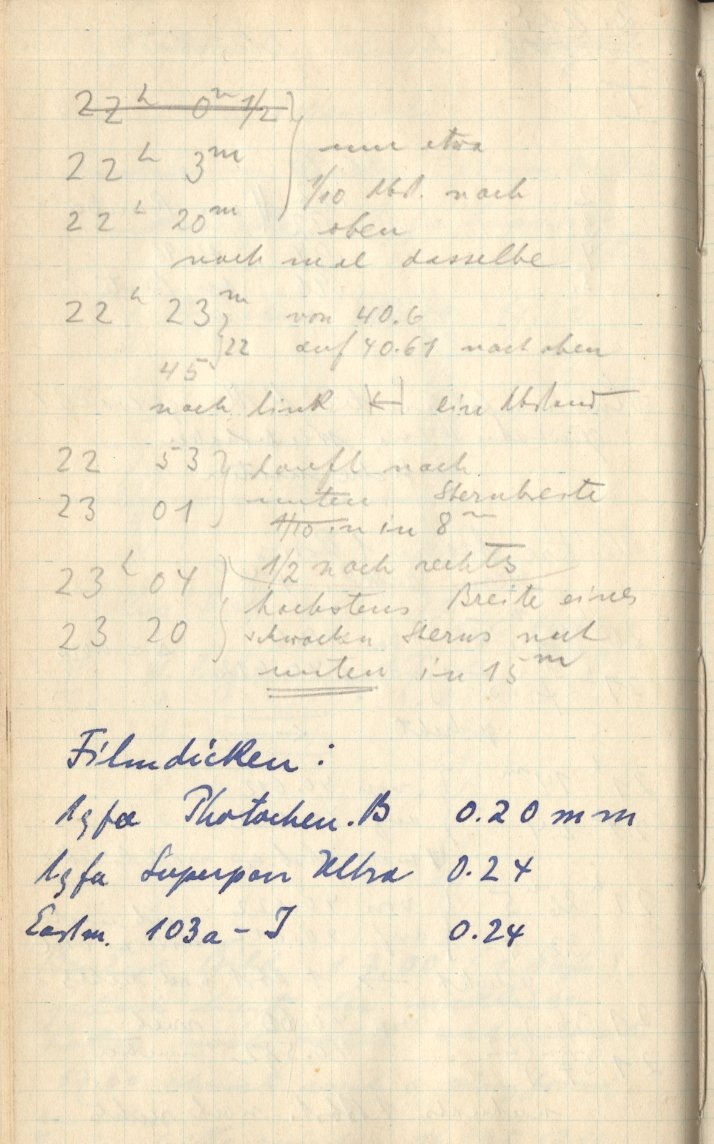 22h 0m 1/2
22h 3m nur etwa
1/10 Abst. nach
22h 20m oben
noch mal dasselbe
22h 23m von 40.6
45 22 auf 40.61 nach oben
nach link ein Abstand
22 53 nach
23 01 unten Sternbreite
1/10 in in 8m
23h 04 1/2 nach rechts
höchstens Breite eines
23 20 schwachen Sterns nach
unten in 15m
Filmdicken:
Agfa Photochem. B 0.20 mm
Agfa Superpan Ultra 0.24
Eastm. 103a-J 0.24